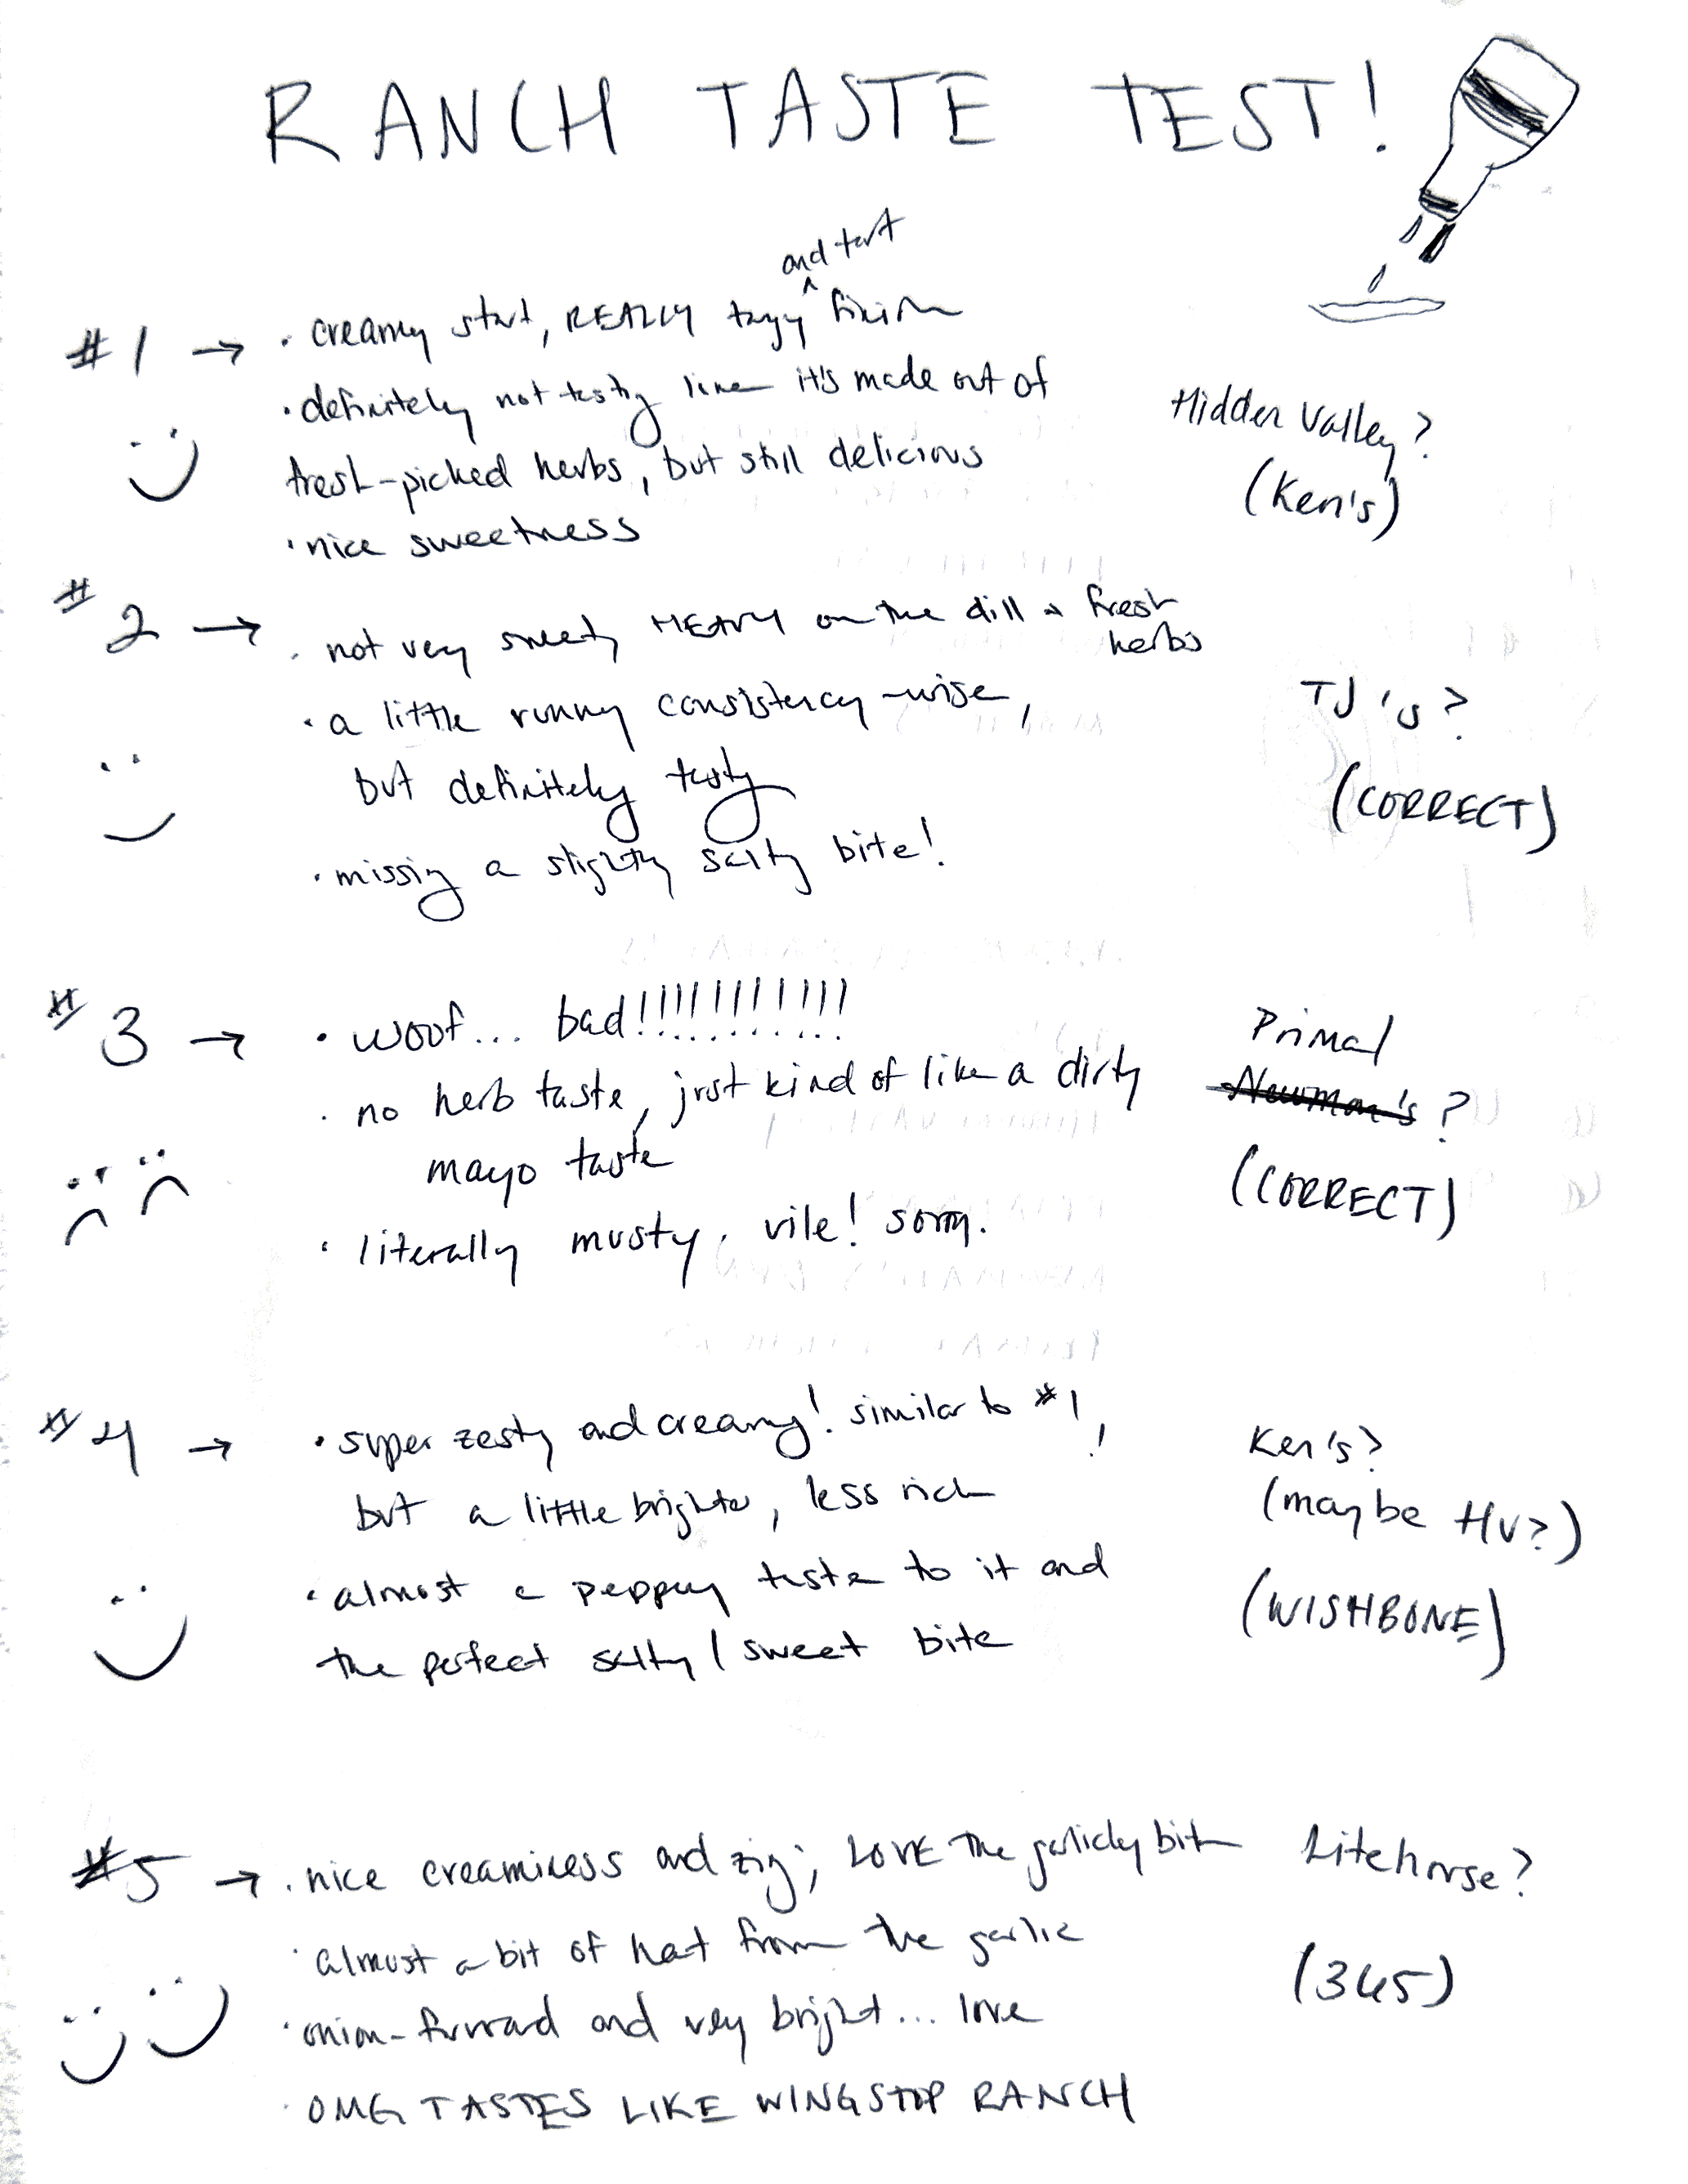 RANCH TASTE TEST!
and tart
#1 → · creamy start, REALLY tangy ^ finish
· definitely not tasting like it's made out of
fresh-picked herbs, but still delicious
· nice sweetness
Hidden Valley?
(Ken's)
#2 → · not very sweet, HEAVY on the dill + fresh
herbs
· a little runny consistency-wise,
but definitely tasty
· missing a slightly salty bite!
TJ's?
(CORRECT)
#3 → · woof... bad!!!!!!!!!!!!
· no herb taste, just kind of like a dirty
mayo taste
· literally musty. vile! sorry.
Primal
Newman's?
(CORRECT)
#4 → · super zesty and creamy! similar to #1!
but a little brighter, less rich
· almost a peppery taste to it and
the perfect salty/sweet bite
Ken's?
(maybe HV?)
(WISHBONE)
#5 → · nice creaminess and zing; LOVE the garlicky bite
· almost a bit of heat from the garlic
· onion-forward and very bright... love
· OMG TASTES LIKE WINGSTOP RANCH
Litehouse?
(365)